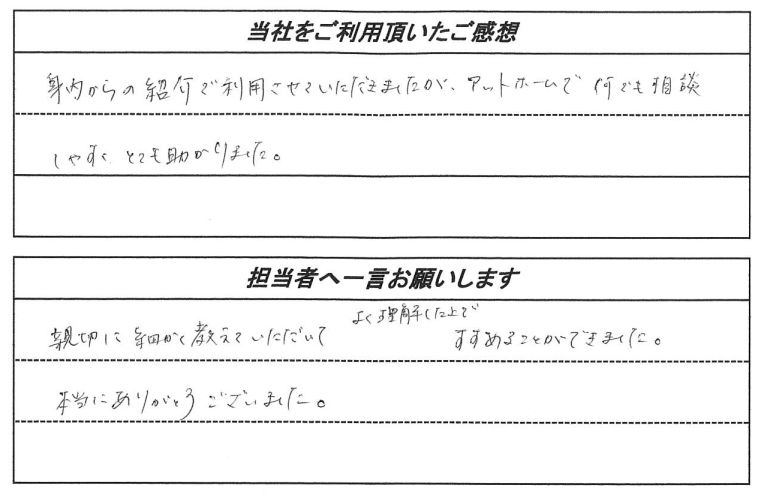 当社をご利用頂いたご感想
身内からの紹介で利用させていただきましたが、アットホームで何でも相談
しやすく とても助かりました。
担当者へ一言お願いします
よく理解した上で
親切に細かく教えていただいて すすめることができました。
本当にありがとうございました。